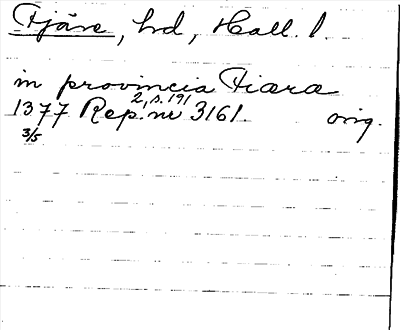 Fjäre, hd, Hall. l.
in provincia Fiæra
2, s. 191
1377 Rep. nr 3161. orig.
3/5